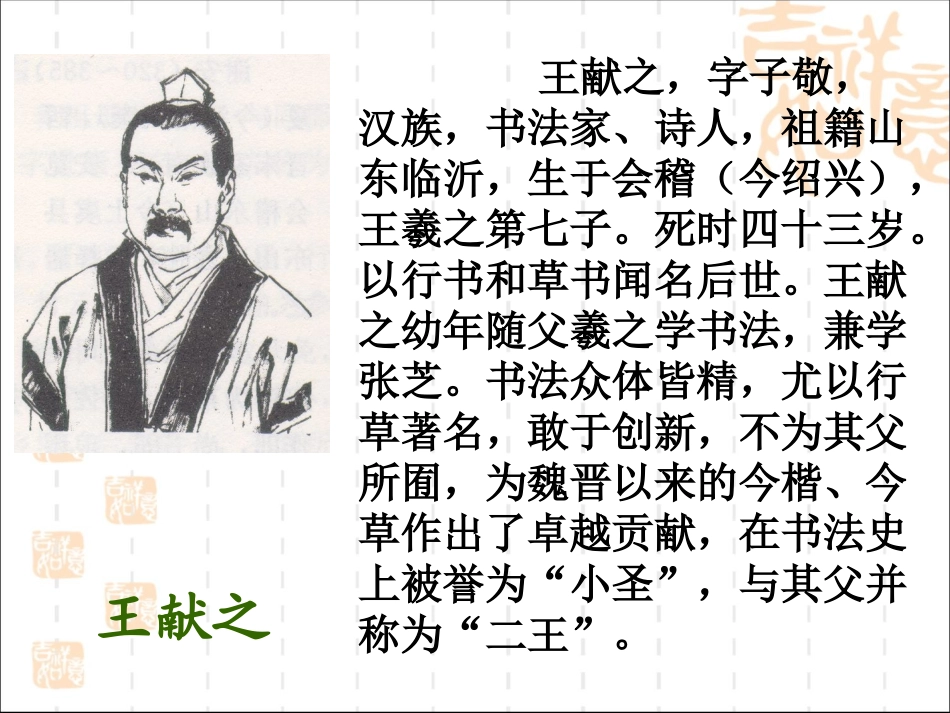 王献之，字子敬，
汉族，书法家、诗人，祖籍山
东临沂，生于会稽（今绍兴），
王羲之第七子。死时四十三岁。
以行书和草书闻名后世。王献
之幼年随父羲之学书法，兼学
张芝。书法众体皆精，尤以行
草著名，敢于创新，不为其父
所囿，为魏晋以来的今楷、今
草作出了卓越贡献，在书法史
上被誉为“小圣”，与其父并
称为“二王”。
王献之